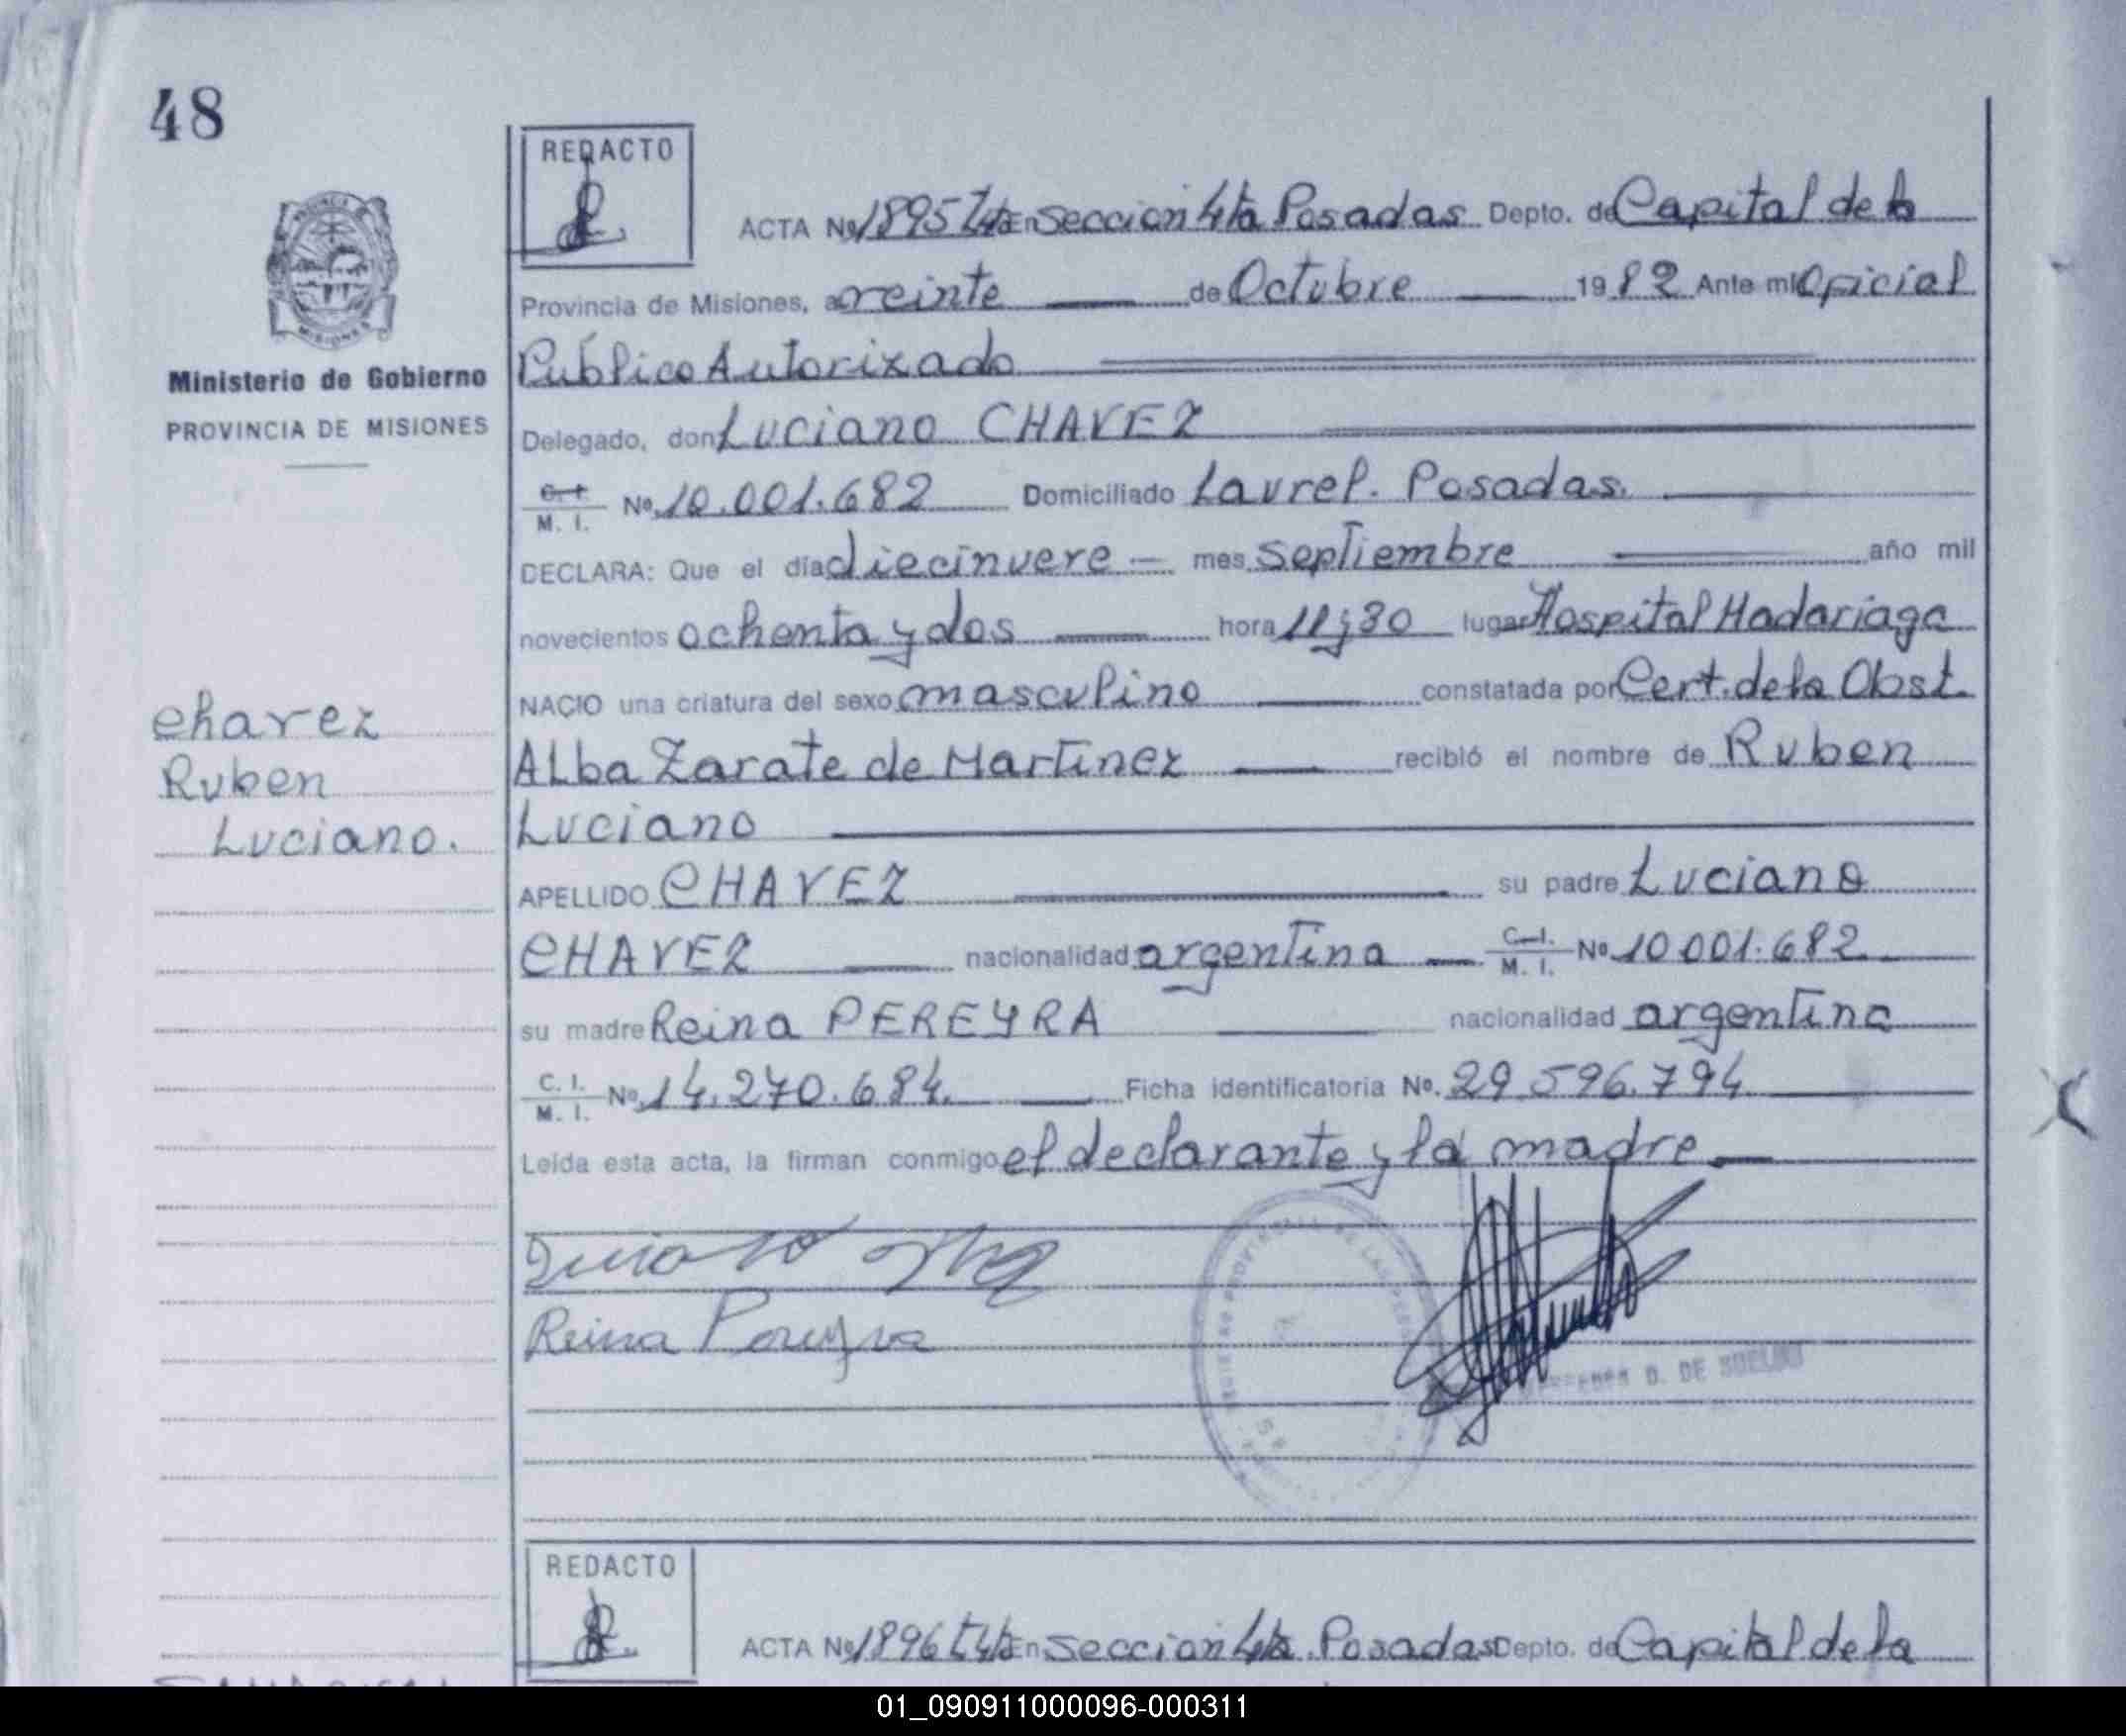 48
REDACTO
ACTA Nº 1895 T4to En Seccion 4ta Posadas Depto. de Capital de la
Provincia de Misiones, a veinte de Octubre 1982 Ante mi Oficial
Público Autorizado
Ministerio de Gobierno
PROVINCIA DE MISIONES
Delegado, don Luciano CHAVEZ
C. I. M. I. Nº 10.001.682 Domiciliado Laurel. Posadas.
DECLARA: Que el día diecinueve mes septiembre año mil
novecientos ochenta y dos hora 11 y 30 lugar Hospital Madariaga
NACIO una criatura del sexo masculino constatada por Cert. de la Obst.
Chavez
Ruben
Luciano.
ALba Zarate de Martinez recibió el nombre de Ruben
Luciano
APELLIDO CHAVEZ su padre Luciano
CHAVEZ nacionalidad argentina C. I. M. I. Nº 10 001.682
su madre Reina PEREYRA nacionalidad argentina
C. I. M. I. Nº 14.270.684. Ficha identificatoria Nº. 29.596.794
Leída esta acta, la firman conmigo el declarante y la madre
Reina Pereyra
D. DE
REDACTO
ACTA Nº 1896 T4to En Seccion 4ta. Posadas Depto. de Capital de la
01_090911000096-000311